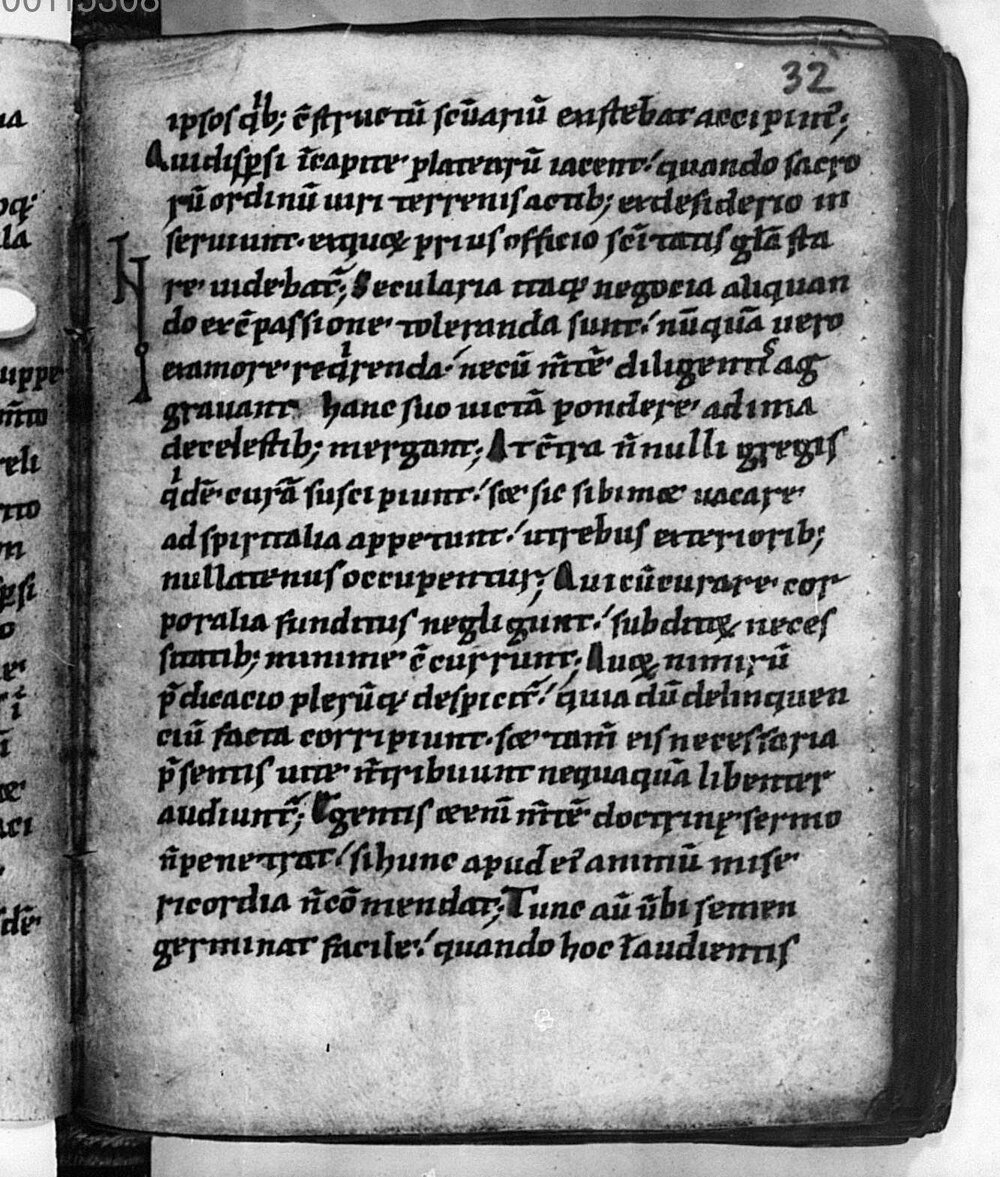 32
ipsos qͥb; c̄structū scūariū exstebat accipiunt̃;
Qui dispersi īcapite platearū iacent·́ quando sacro
rū ordinū uiri terrenis actib; ex desiderio in
seruiunt· ex quoꝝ prius officio sc̄itatis gl̄a sta
re uidebat̃; Secularia itaq negocia aliquan
do ex c̄passione toleranda sunt·́ nūquā uero
ex amore reqͥrenda·́ ne cū m̄tē diligentiˢ ag
grauant hanc suo uictā pondere ad ima
de celestib; mergant; At c̄tra n̄nulli gregis
qͥdē curā suscipiunt·́ sꝫ sic sibimꝫ uacare
ad spiritalia appetunt·́ ut rebus exteriorib;
nullatenus occupentur; Qui cū curare cor
poralia funditus negligunt·́ subditoꝝ neces
sitatib; minime c̄currunt; Quoꝝ nimirū
p̄dicacio plerūq despicit̃·́ quia dū delinquen
ciū facta corripiunt· sꝫ tam̄ eis necessaria
p̄sentis uite n̄tribuunt nequaquā libenter
audiunt̃; Egentis etenī m̄tē doctrinę sermo
n̄penetrat·́ si hunc apud ei animū mise
ricordia n̄cōmendat; Tunc aū ūbi semen
germinat facile·́ quando hoc ł audientis